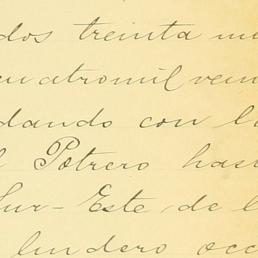 dos treinta mi
cuatromil vein
dando con l
l Potrero has
Sur-Este de l
lindero occ